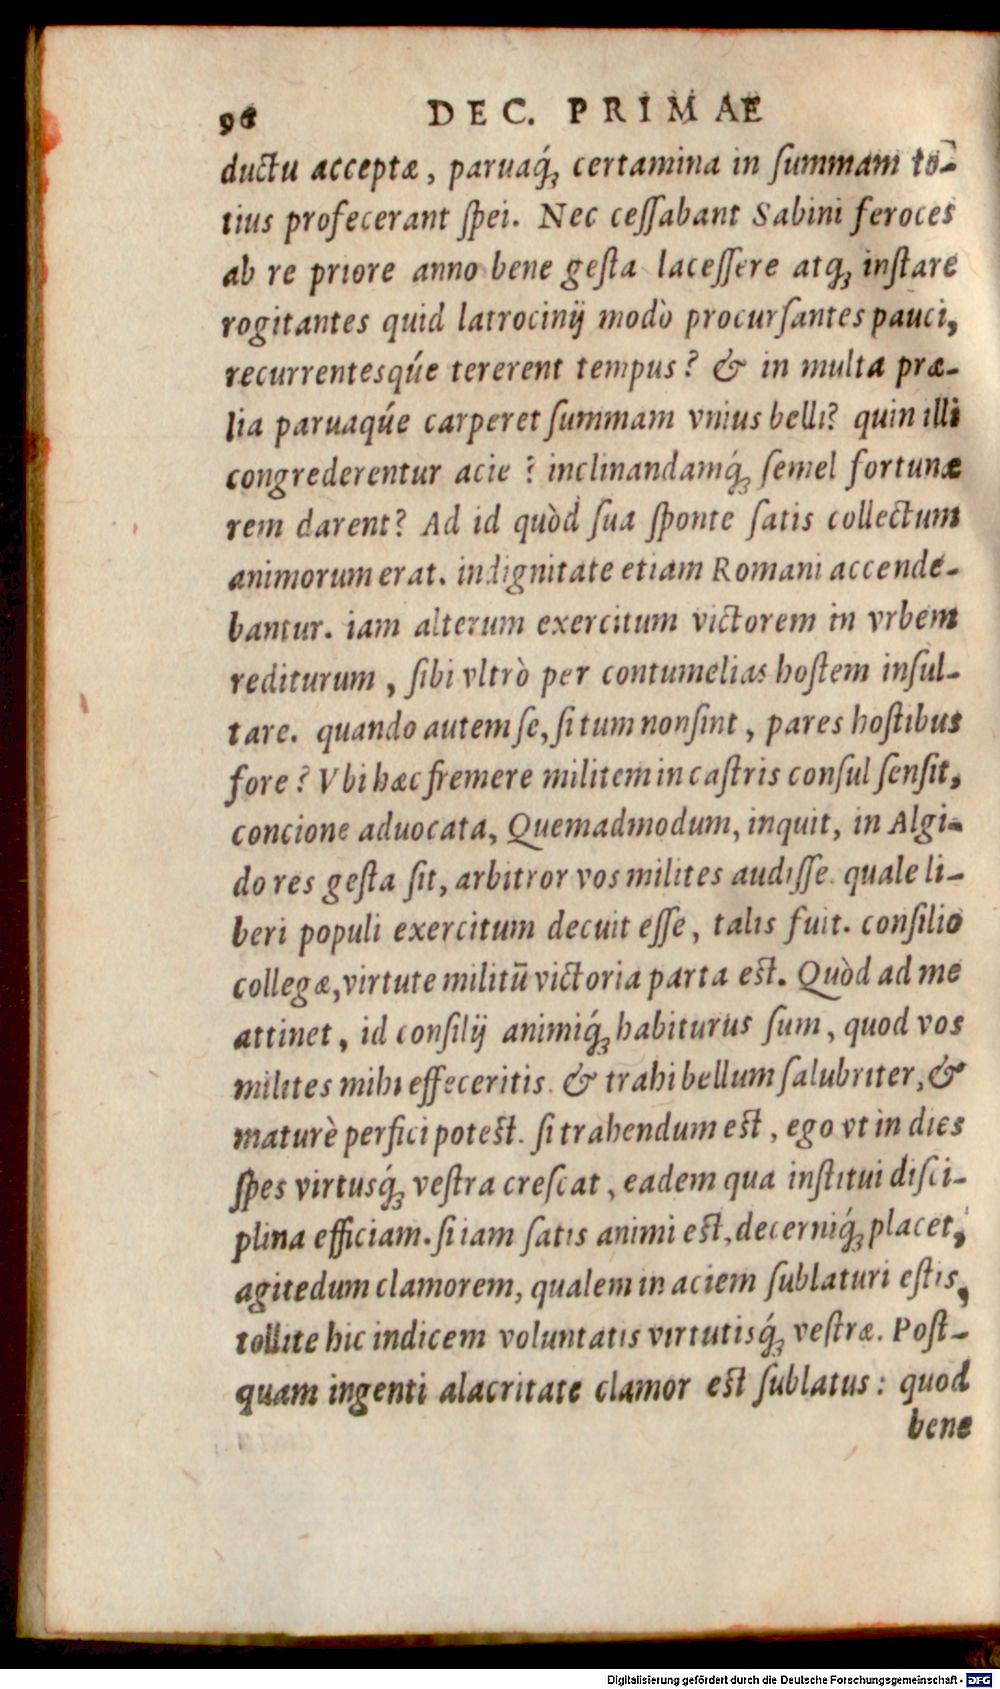 96 DEC. PRIMAE
ductu acceptæ, paruaq́ꝫ certamina in ſummam to-
tius profecerant ſpei. Nec ceſſabant Sabini feroces
ab re priore anno bene geſta laceſſere atqꝫ inſtare
rogitantes quid latrocinij modò procurſantes pauci,
recurrentesq́ue tererent tempus? & in multa præ-
lia paruaq́ue carperet ſummam vnius belli? quin illi
congrederentur acie? inclinandamq́ꝫ ſemel fortunæ
rem darent? Ad id quòd ſua ſponte ſatis collectum
animorum erat. indignitate etiam Romani accende-
bantur. iam alterum exercitum victorem in vrbem
rediturum, ſibi vltrò per contumelias hoſtem inſul-
tare. quando autem ſe, ſi tum non ſint, pares hoſtibus
fore? Vbi hæc fremere militem in caſtris conſul ſenſit,
concione aduocata, Quemadmodum, inquit, in Algi-
do res geſta ſit, arbitror vos milites audiſſe. quale li-
beri populi exercitum decuit eſſe, talis fuit. conſilio
collegæ, virtute militū victoria parta eſt. Quòd ad me
attinet, id conſilij animiq́ꝫ habiturus ſum, quod vos
milites mihi effeceritis. & trahi bellum ſalubriter, &
maturè perfici poteſt. ſi trahendum eſt, ego vt in dies
ſpes virtusq́ꝫ veſtra creſcat, eadem qua inſtitui diſci-
plina efficiam. ſi iam ſatis animi eſt, decerniq́ꝫ placet,
agitedum clamorem, qualem in aciem ſublaturi eſtis,
tollite hic indicem voluntatis virtutisq́ꝫ veſtræ. Poſt-
quam ingenti alacritate clamor eſt ſublatus: quod
bene
Digitalisierung gefördert durch die Deutsche Forschungsgemeinschaft - DFG